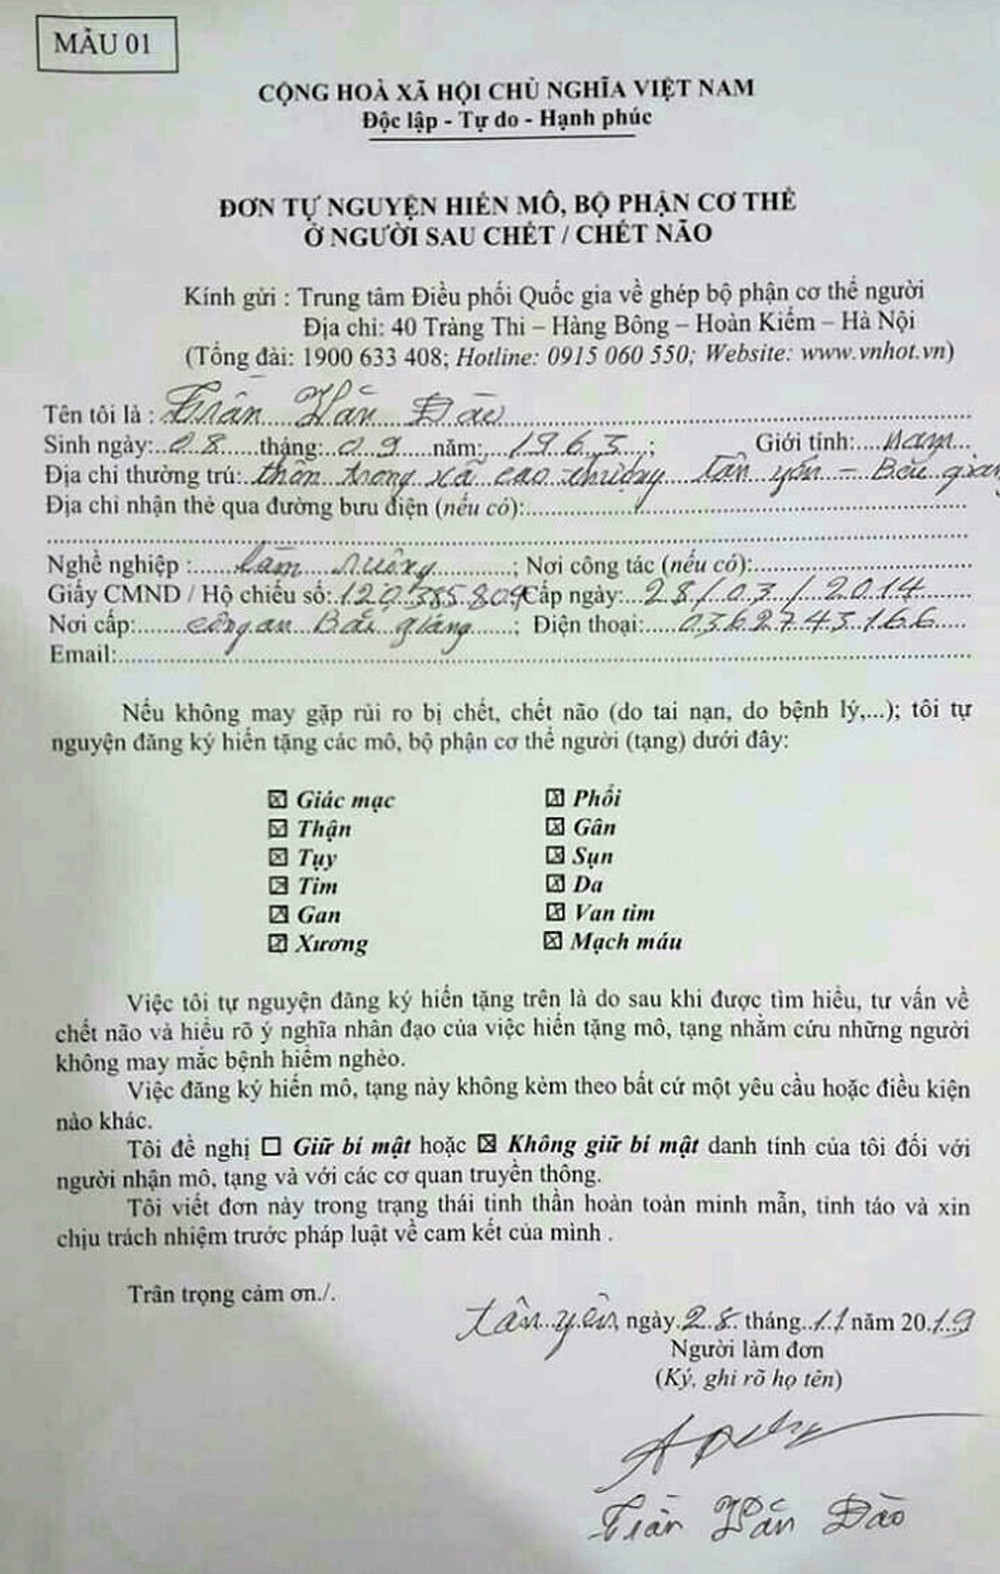 MẪU 01
CỘNG HOÀ XÃ HỘI CHỦ NGHĨA VIỆT NAM
Độc lập - Tự do - Hạnh phúc
ĐƠN TỰ NGUYỆN HIẾN MÔ, BỘ PHẬN CƠ THỂ
Ở NGƯỜI SAU CHẾT / CHẾT NÃO
Kính gửi : Trung tâm Điều phối Quốc gia về ghép bộ phận cơ thể người
Địa chỉ: 40 Tràng Thi – Hàng Bông – Hoàn Kiếm – Hà Nội
(Tổng đài: 1900 633 408; Hotline: 0915 060 550; Website: www.vnhot.vn)
Tên tôi là : Trần Văn Đào
Sinh ngày: 08 tháng: 09 năm: 1963; Giới tính: Nam
Địa chỉ thường trú: thôn trong xã cao thượng tân yên – Bắc giang
Địa chỉ nhận thẻ qua đường bưu điện (nếu có):
Nghề nghiệp : Làm ruộng; Nơi công tác (nếu có):
Giấy CMND / Hộ chiếu số: 120385809 Cấp ngày: 28/03/2014
Nơi cấp: công an Bắc giang; Điện thoại: 0362743166
Email:
Nếu không may gặp rủi ro bị chết, chết não (do tai nạn, do bệnh lý,...); tôi tự
nguyện đăng ký hiến tặng các mô, bộ phận cơ thể người (tạng) dưới đây:
☒ Giác mạc ☒ Phổi
☒ Thận ☒ Gân
☒ Tụy ☒ Sụn
☒ Tim ☒ Da
☒ Gan ☒ Van tim
☒ Xương ☒ Mạch máu
Việc tôi tự nguyện đăng ký hiến tặng trên là do sau khi được tìm hiểu, tư vấn về
chết não và hiểu rõ ý nghĩa nhân đạo của việc hiến tặng mô, tạng nhằm cứu những người
không may mắc bệnh hiểm nghèo.
Việc đăng ký hiến mô, tạng này không kèm theo bất cứ một yêu cầu hoặc điều kiện
nào khác.
Tôi đề nghị ☐ Giữ bí mật hoặc ☒ Không giữ bí mật danh tính của tôi đối với
người nhận mô, tạng và với các cơ quan truyền thông.
Tôi viết đơn này trong trạng thái tinh thần hoàn toàn minh mẫn, tỉnh táo và xin
chịu trách nhiệm trước pháp luật về cam kết của mình .
Trân trọng cảm ơn./.
tân yên, ngày 28 tháng 11 năm 2019
Người làm đơn
(Ký, ghi rõ họ tên)
Trần Văn Đào